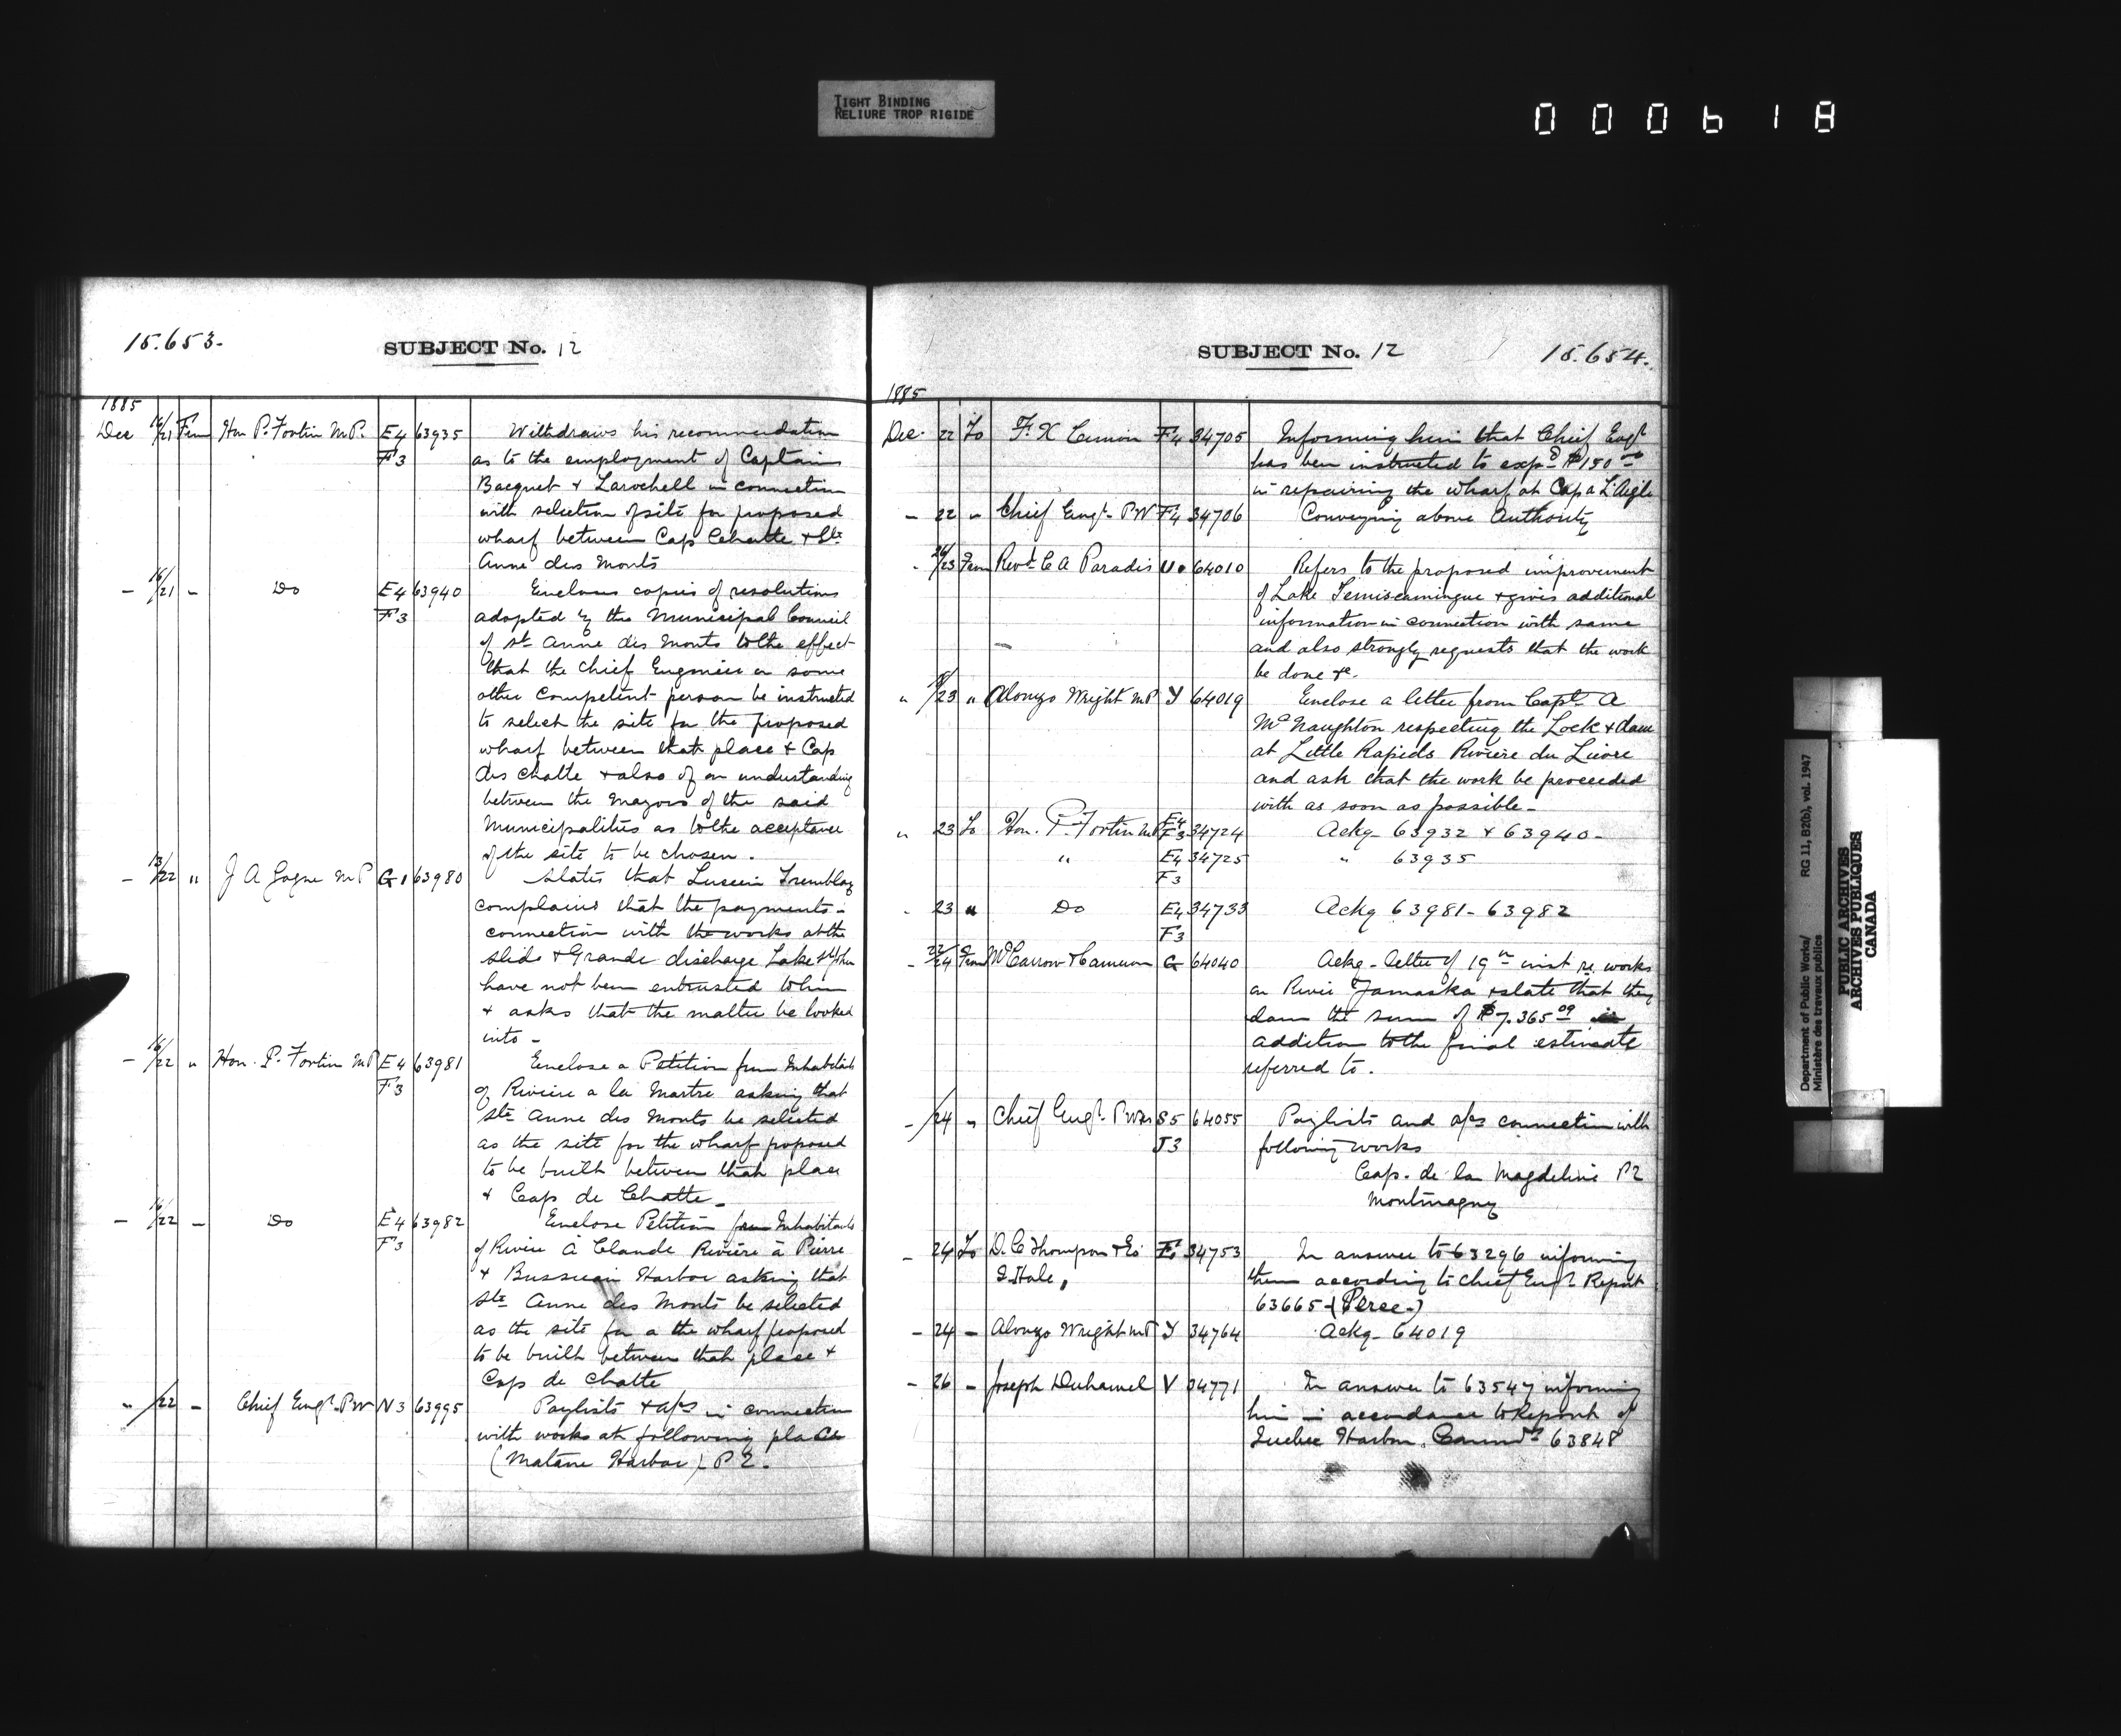 TIGHT BINDING
RELIURE TROP RIGIDE
000618
15.653.
SUBJECT No. 12
1885
Dec 16/21 From Hon P. Fortin M.P. E4 63935 Withdraws his recommendation
F3 as to the employment of Captains
Bacquet & Larochell in connection
with selection of site for proposed
wharf between Cap Chatte & Ste
Anne des Monts
- 16/21 - Do E4 63940 Encloses copies of resolutions
F3 adopted by the Municipal Council
of St Anne des Monts to the effect
that the Chief Engineer or some
other competent person be instructed
to select the site for the proposed
wharf between that place & Cap
des Chatte & also of an understanding
between the Mayors of the said
Municipalities as to the acceptance
of the site to be chosen.
- 13/22 " J A Gagne M P G1 63980 States that Lucien Tremblay
complains that the payments in
connection with the works at the
slide & Grande discharge Lake St John
have not been entrusted to him
& asks that the matter be looked
into -
- 16/22 " Hon. P. Fortin MP E4 63981 Enclose a Petition from Inhabitants
F3 of Riviere a la Martre asking that
Ste Anne des Monts be selected
as the site for the wharf proposed
to be built between that place
& Cap de Chatte -
- 16/22 - Do E4 63982 Enclose Petition from Inhabitants
F3 of Riviere à Claude Rivière à Pierre
& Harbor asking that
Ste Anne des Monts be selected
as the site for a the wharf proposed
to be built between that place &
Cap de Chatte
" /22 - Chief Engr. PW N3 63995 Paylists & a/cs in connection
with works at following places
(Matane Harbor) P2.
SUBJECT No. 12
15.654.
1885
Dec. 22 To F. X Cimon F4 34705 Informing him that Chief Engr
has been instructed to expd $150 00
in repairing the wharf at Cap a L'Aigle
- 22 " Chief Engr. PW F4 34706 Conveying above Authority
" /23 From Revd C A Paradis U. 64010 Refers to the proposed improvement
of Lake Temiscamingue & gives additional
information in connection with same
and also strongly requests that the work
be done &c.
" /23 " Alonzo Wright MP Y 64019 Enclose a letter from Capt. A
McNaughton respecting the Lock & dam
at Little Rapids Rivière du Lievre
and ask that the work be proceeded
with as soon as possible -
" 23 To Hon. P. Fortin MP E4 F3 34724 Ackg - 63932 & 63940 -
" E4 34725 " 63935
F3
" 23 " Do E4 34733 Ackg 63981 - 63982
F3
- 22/24 From McCarron & Cameron G 64040 Ackg - letter of 19th inst re works
on River Yamaska & state that they
claim the sum of $7.365 09 in
addition to the final estimate
referred to.
- /24 " Chief Engr. PWks S5 64055 Paylists and a/cs connection with
J3 following works
Cap. de la Magdeline P2
Montmagny
- 24 To D. C Thompson & Co 34753 In answer to 63296 informing
I Hale, them according to Chief Engr. Report
63665 - (Perce -)
- 24 - Alonzo Wright MP Y 34764 Ackg - 64019
- 26 - Joseph Duhamel V 34771 In answer to 63547 informing
him in accordance to Report of
Quebec Harbor. Commrs 63848
Department of Public Works/
Ministère des travaux publics
RG 11, B2(b), vol. 1947
PUBLIC ARCHIVES
ARCHIVES PUBLIQUES
CANADA